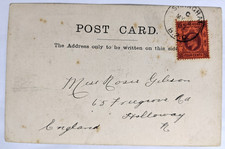 POST CARD.
The Address only to be written on this side
Miss Rosie Gibson
65
Holloway
England N